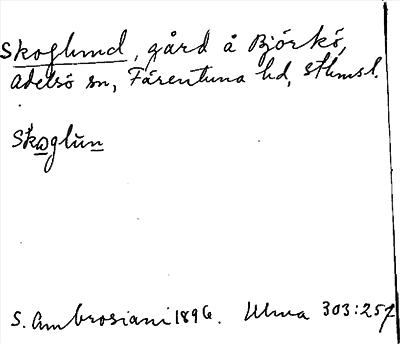 Skoglund, gård å Björkö,
Adelsö sn, Färentuna hd, Sthmsl.
Skoglun
S. Ambrosiani 1896. Ulma 303:257